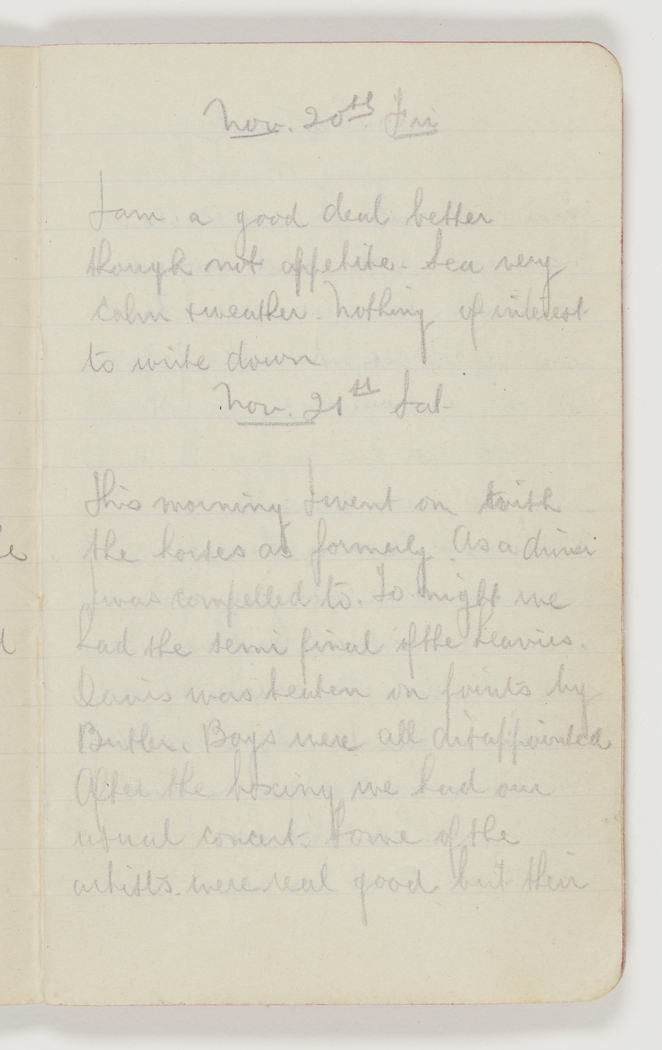 Nov. 20th Fri
I am a good deal better
though not appetite. Sea very
calm & weather. Nothing of interest
to write down
Nov. 21st Sat
This morning I went on with
the horses as formerly. As a driver
I was compelled to. To night we
had the semi final of the heavies.
Davis was beaten on points by
Butler. Boys were all disappointed
After the boxing we had our
usual concert. Some of the
artists were real good but their